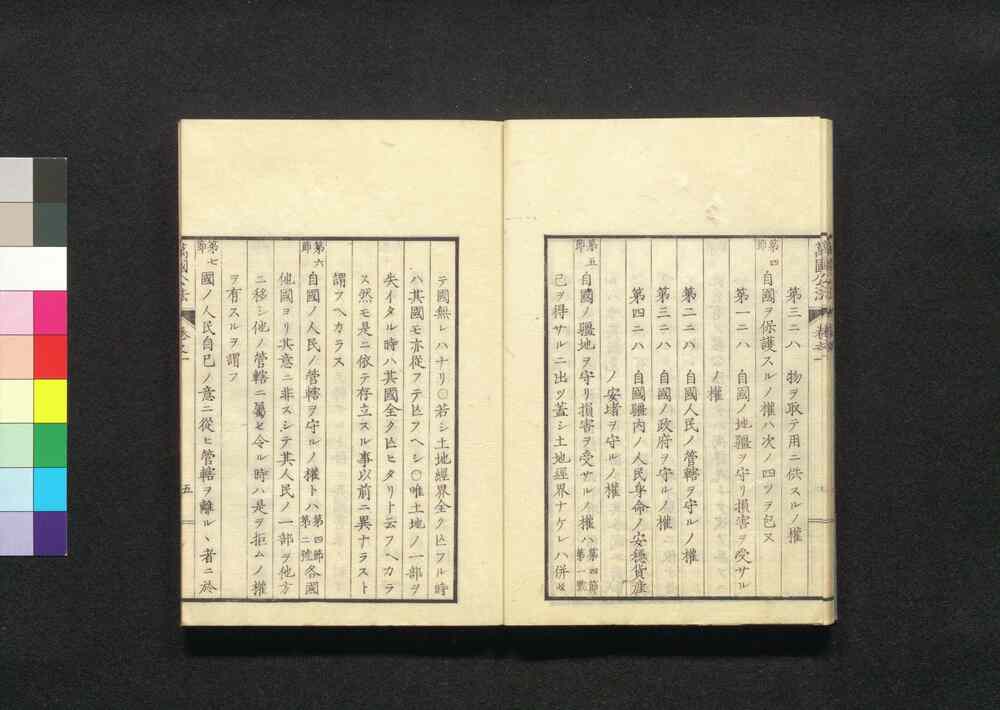 萬國公法 卷之一
第三ニハ 物ヲ取テ用ニ供スルノ權
第四節 自國ヲ保護スルノ權ハ次ノ四ツヲ包又
第一ニハ 自國ノ地疆ヲ守リ損害ヲ受サル
ノ權
第二ニハ 自國人民ノ管轄ヲ守ルノ權
第三ニハ 自國ノ政府ヲ守ルノ權
第四ニハ 自國疆内ノ人民身命ノ安穩貨産
ノ安堵ヲ守ルノ權
第五節 自國ノ疆地ヲ守リ損害ヲ受サルノ權ハ第四節第一號
己ヲ得サルニ出ツ蓋シ土地經界ナケレハ併セ
テ國無レハナリ○若シ土地經界全ク亡フル時
ハ其國モ亦從フテ亡フヘシ○唯土地ノ一部ヲ
失イタル時ハ其國全ク亡ヒタリト云フヘカラ
ス然モ是ニ依テ存立スル事以前ニ異ナラスト
謂フヘカラス
第六節 自國ノ人民ノ管轄ヲ守ルノ權トハ第四節第二號各國
他國ヨリ其意ニ非スシテ其人民ノ一部ヲ他方
ニ移シ他ノ管轄ニ屬セ令ル時ハ是ヲ拒ムノ權
ヲ有スルヲ謂フ
第七節 國ノ人民自己ノ意ニ從ヒ管轄ヲ離ルヽ者ニ於
萬國公法 卷之一 五